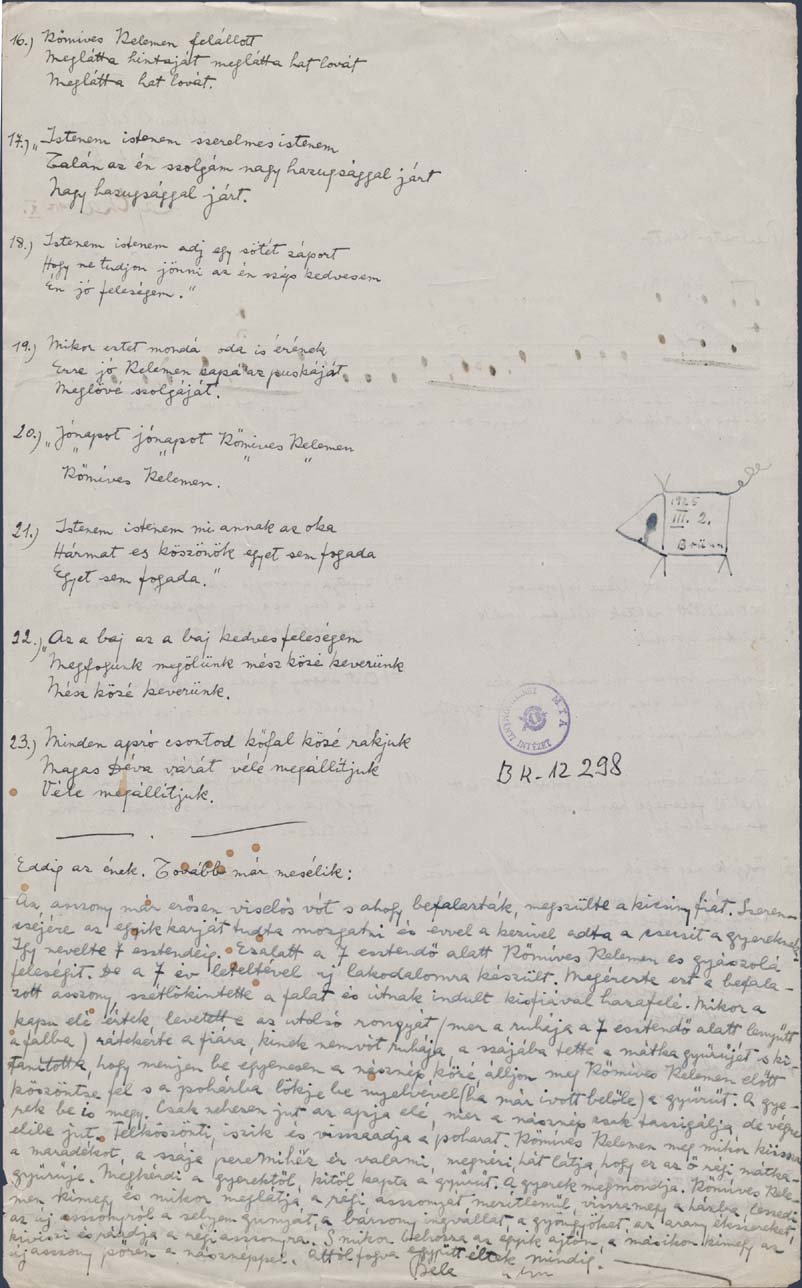 16.) Kőmives Kelemen felállott
Meglátta hintaját meglátta hat lovát
Meglátta hat lovát.
17.) „Istenem istenem szerelmes istenem
Talán az én szolgám nagy hazugsággal járt
Nagy hazugsággal járt.
18.) Istenem istenem adj egy sötét záport
Hogy ne tudjon jönni az én szép kedvesem
Én jó feleségem."
19.) Mikor eztet mondá oda is érének
Erre jó Kelemen kapá az puskáját
Meglövé szolgáját.
20.) „Jónapot jónapot Kőmives Kelemen
" " " "
Kőmives Kelemen.
21.) Istenem istenem mi annak az oka
Hármat es köszönök egyet sem fogada
Egyet sem fogada."
1925
III. 2.
Brünn
22.) „Az a baj az a baj kedves feleségem
Megfogunk megölünk mész közé keverünk
Mész közé keverünk.
23.) Minden apró csontod kőfal közé rakjuk
Magas Déva várát véle megállitjuk
Véle megállitjuk.
MTA
INTÉZET
BR-12 298
Eddig az ének. Tovább már mesélik:
Az asszony már erősen viselős vót s ahogy befalazták, megszülte a kicsiny fiát. Szeren-
cséjére az egyik karját tudta mozgatni és évvel a kezivel adta a csecsit a gyereknek.
Igy nevelte 7 esztendeig. Ezalatt a 7 esztendő alatt Kőmives Kelemen es gyászolá
feleségit. De a 7 év leteltével új lakodalomra készült. Megérezte ezt a befala-
zott asszony, szétlökintette a falat és útnak indult kisfiával hazafelé. Mikor a
kapu elé értek, levetette az utolsó rongyát (mer a ruhája a 7 esztendő alatt lenyűtt
a falba) rátekérte a fiára, kinek nem vót ruhája, a szájába tette a mátka gyűrűjét s ki-
tanította, hogy menjen be egyenesen a násznep közé, álljon meg Kőmives Kelemen előtt
köszöntse fel s a pohárba lökje be nyelvével (ha már ivott belőle) a gyűrűt. A gye-
rek be is megy. Csak nehezen jut az apja elé, mer a násznep csak taszigálja, de végre
elibe jut. Felköszönti, iszik és visszaadja a poharat. Kőmives Kelemen meg mikor kiissza
a maradékot, a szája peremihez ér valami, megnézi, hát látja, hogy ez az ő régi mátka-
gyűrűje. Megkérdi a gyerektől, kitől kapta a gyűrűt. A gyerek megmondja. Kőmives Kele-
men kimegy és mikor meglátja a régi asszonyát meztelenül, visszamegy a házba, leszedi
az új asszonyról a selyem gunyát, a bársony ingvállat, a gyöngyöket, az arany ékszereket,
kiviszi és ráadja a régi asszonyra. S mikor behozza az egyik ajtón, a másikon kimegy az
új asszony pőrén a násznéppel. Attól fogva együtt éltek mindig.
Béla